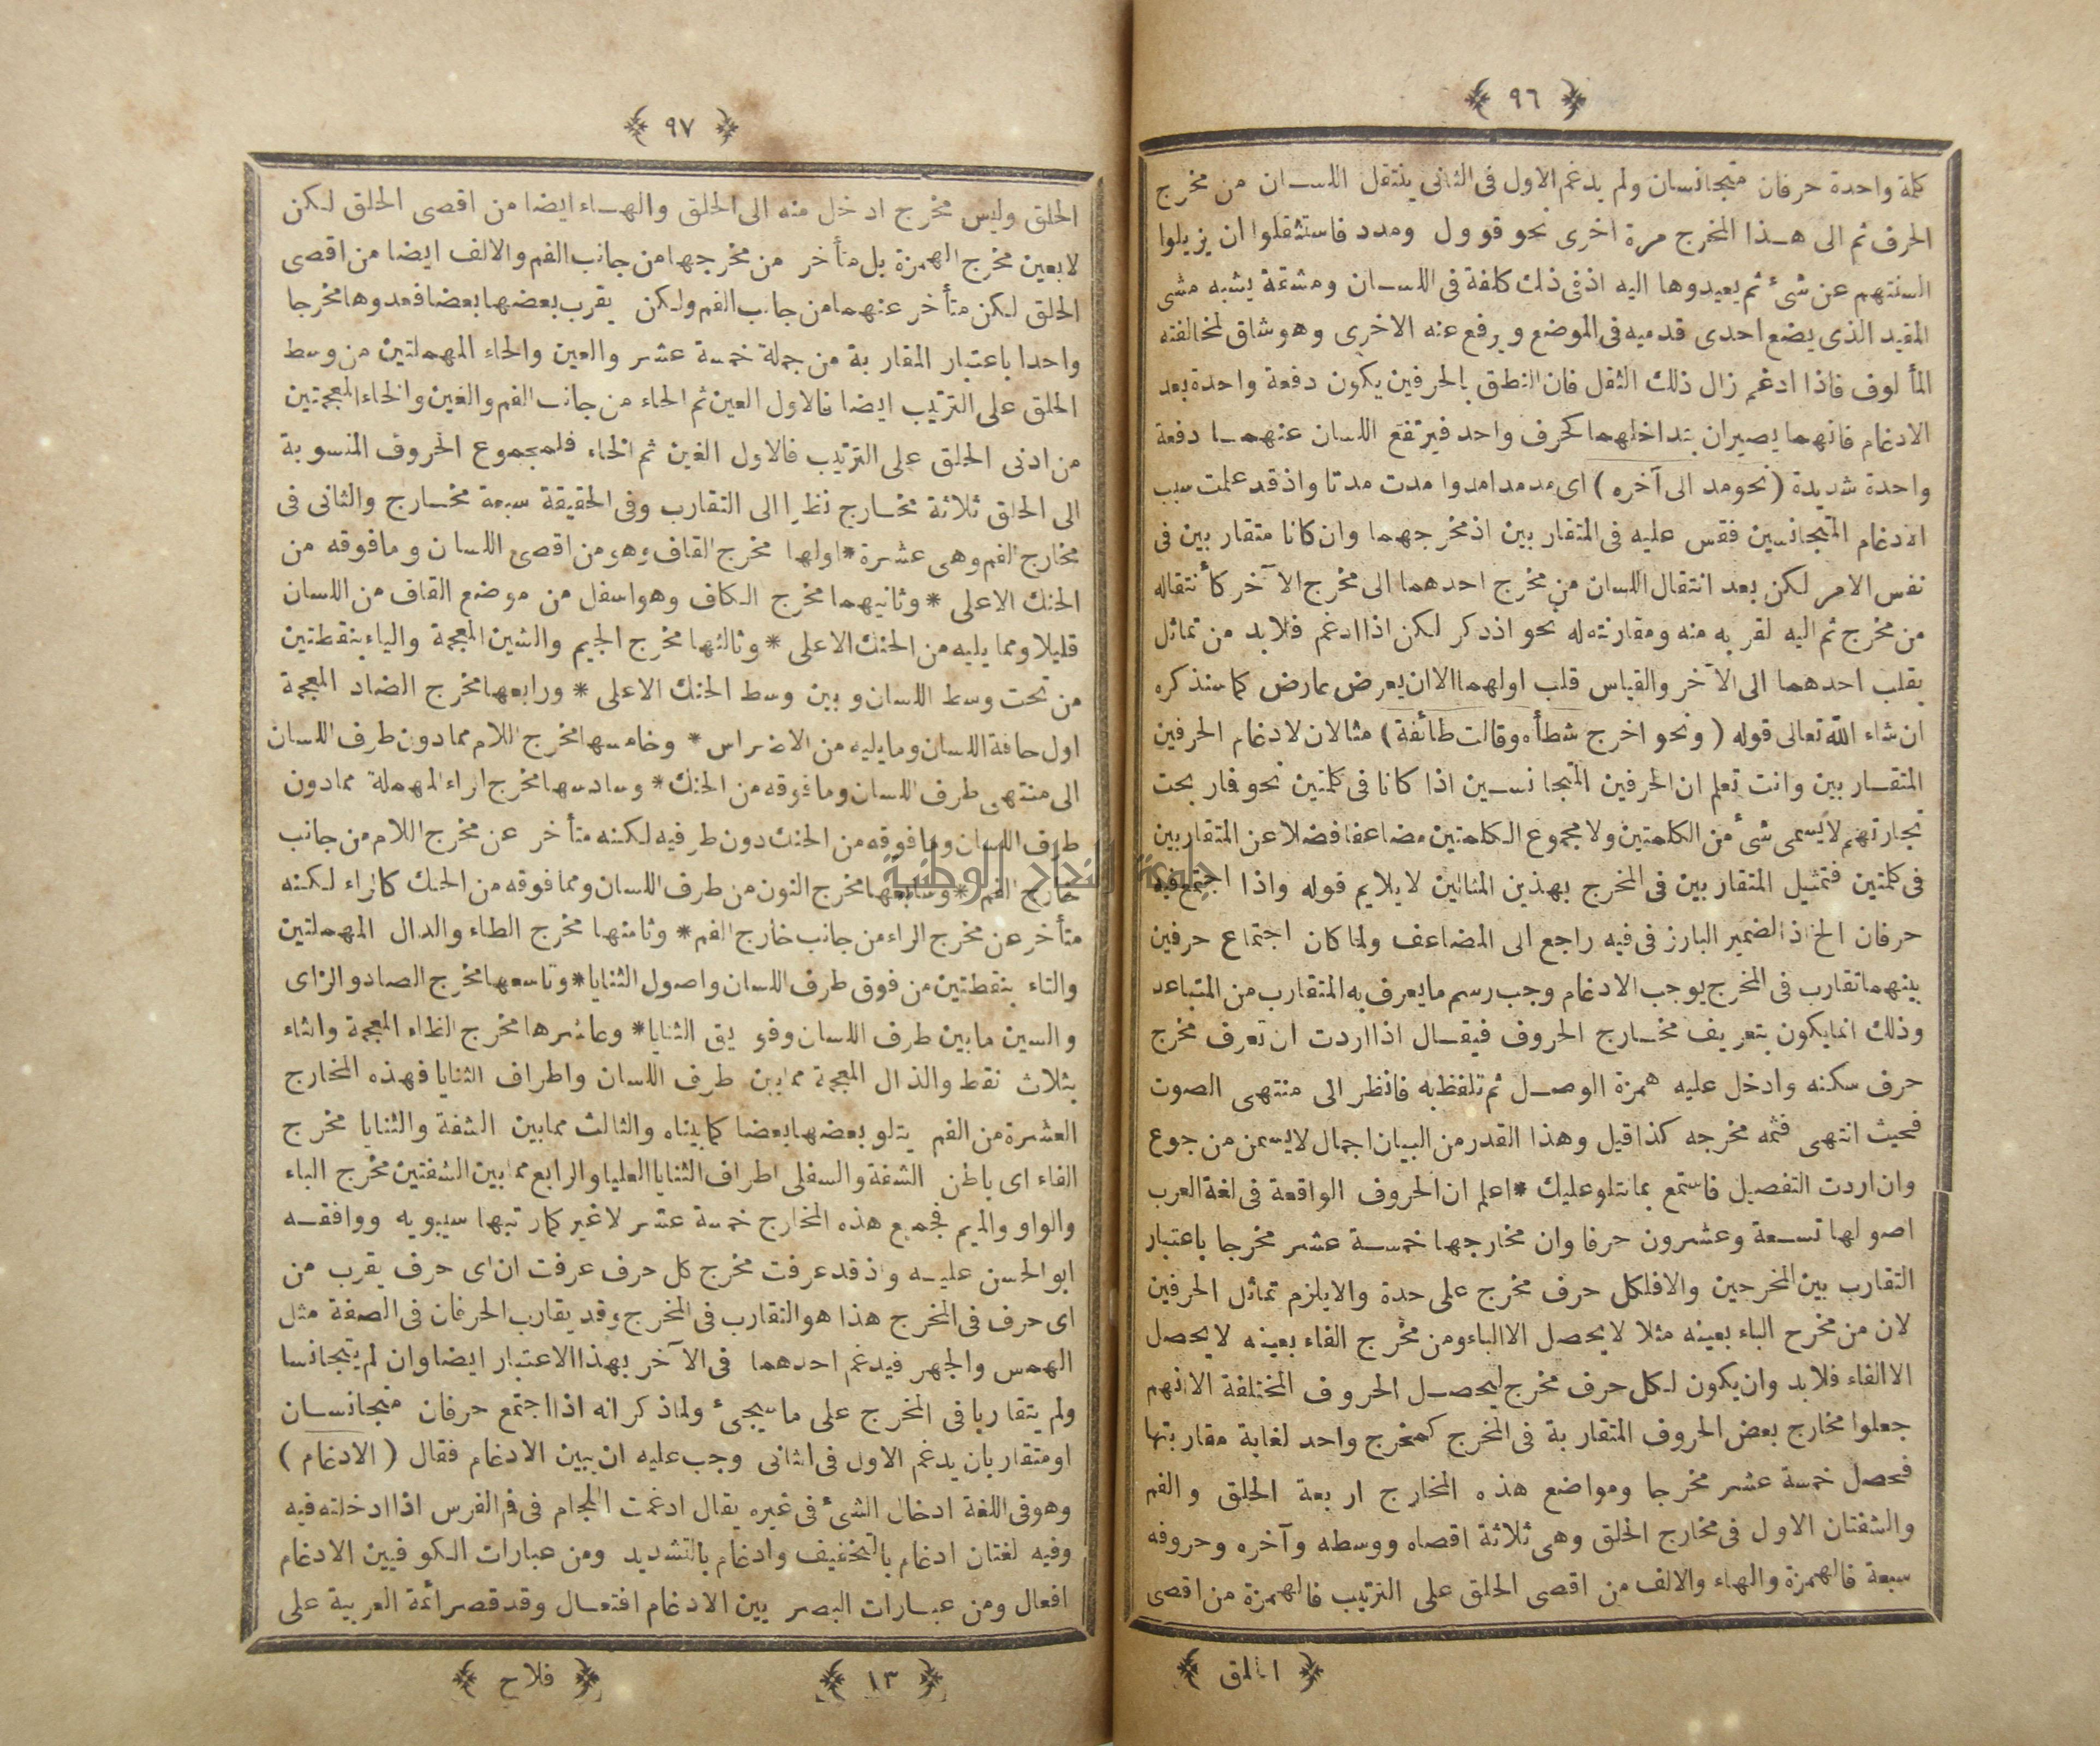 ﴿ ٩٦ ﴾
كلمة واحدة حرفان متجانسان ولم يدغم الاول فى الثانى ينتقل اللسان من مخرج
الحرف ثم الى هذا المخرج مرة اخرى نحو قوول ومدد فاستثقلوا ان يزيلوا
السنتهم عن شئ ثم يعيدوها اليه اذ فى ذلك كلفة فى اللسان ومشقة يشبه مشى
المقيد الذى يضع احدى قدميه فى الموضع ويرفع عنه الاخرى وهو شاق لمخالفته
المألوف فاذا ادغم زال ذلك الثقل فان النطق بالحرفين يكون دفعة واحدة بعد
الادغام فانهما يصيران بتداخلهما كحرف واحد فيرتفع اللسان عنهما دفعة
واحدة شديدة (نحو مد الى آخره) اى مد مدا مدوا مدت مدتا واذ قد علمت سبب
ادغام المتجانسين فقس عليه فى المتقاربين اذ مخرجهما وان كانا متقاربين فى
نفس الامر لكن بعد انتقال اللسان من مخرج احدهما الى مخرج الآخر كأنتقاله
من مخرج ثم اليه لقربه منه ومقارنته له نحو اذدكر لكن اذا ادغم فلابد من تماثل
بقلب احدهما الى الآخر والقياس قلب اولهما الا ان يعرض عارض كما سنذكره
ان شاء الله تعالى قوله (ونحو اخرج شطأه وقالت طائفة) مثالان لادغام الحرفين
المتقاربين وانت تعلم ان الحرفين المتجانسين اذا كانا فى كلمتين نحو فار بحت
تجارتهم لا يسمى شئ من الكلمتين ولا مجموع الكلمتين مضاعفا فضلا عن المتقاربين
فى كلمتين فتمثيل المتقاربين فى المخرج بهذين المثالين لا يلايم قوله واذا اجتمع فيه
حرفان الخ اذ الضمير البارز فى فيه راجع الى المضاعف ولما كان اجتماع حرفين
بينهما تقارب فى المخرج يوجب الادغام وجب رسم ما يعرف به المتقارب من المتباعد
وذلك انما يكون بتعريف مخارج الحروف فيقال اذا اردت ان تعرف مخرج
حرف سكنه وادخل عليه همزة الوصل ثم تلفظ به فانظر الى منتهى الصوت
فحيث انتهى فثمه مخرجه كذا قيل وهذا القدر من البيان اجمال لا يسمن من جوع
وان اردت التفصيل فاستمع بما نتلو عليك * اعلم ان الحروف الواقعة فى لغة العرب
اصولها تسعة وعشرون حرفا وان مخارجها خمسة عشر مخرجا باعتبار
التقارب بين المخرجين والا فلكل حرف مخرج على حدة والا يلزم تماثل الحرفين
لان من مخرح الباء بعينه مثلا لا يحصل الا الباء ومن مخرج الفاء بعينه لا يحصل
الا الفاء فلابد وان يكون لكل حرف مخرج ليحصل الحروف المختلفة الا انهم
جعلوا مخارج بعض الحروف المتقاربة فى المخرج كمخرج واحد لغاية مقاربتها
فحصل خمسة عشر مخرجا ومواضع هذه المخارج اربعة الحلق والفم
والشفتان الاول فى مخارج الحلق وهى ثلاثة اقصاه ووسطه وآخره وحروفه
سبعة فالهمزة والهاء والالف من اقصى الحلق على الترتيب فالهمزة من اقصى
﴿ الحلق ﴾
﴿ ٩٧ ﴾
الحلق وليس مخرج ادخل منه الى الحلق والهاء ايضا من اقصى الحلق لكن
لا بعين مخرج الهمزة بل متأخر من مخرجها من جانب الفم والالف ايضا من اقصى
الحلق لكن متأخر عنهما من جانب الفم ولكن يقرب بعضها بعضا فعدوها مخرجا
واحدا باعتبار المقاربة من جملة خمسة عشر والعين والحاء المهملتين من وسط
الحلق على الترتيب ايضا فالاول العين ثم الحاء من جانب الفم والغين والخاء المعجمتين
من ادنى الحلق على الترتيب فالاول الغين ثم الخاء فلمجموع الحروف المنسوبة
الى الحلق ثلاثة مخارج نظرا الى التقارب وفى الحقيقة سبعة مخارج والثانى فى
مخارج الفم وهى عشرة * اولها مخرج القاف وهو من اقصى اللسان وما فوقه من
الحنك الاعلى * وثانيهما مخرج الكاف وهو اسفل من موضع القاف من اللسان
قليلا ومما يليه من الحنك الاعلى * وثالثها مخرج الجيم والشين المعجمة والياء بنقطتين
من تحت وسط اللسان وبين وسط الحنك الاعلى * ورابعها مخرج الضاد المعجمة
اول حافة اللسان وما يليه من الاضراس * وخامسها مخرج اللام مما دون طرف اللسان
الى منتهى طرف اللسان وما فوقه من الحنك * وسادسها مخرج الراء المهملة مما دون
طرف اللسان وما فوقه من الحنك دون طرفيه لكنه متأخر عن مخرج اللام من جانب
خارج الفم * وسابعها مخرج النون من طرف اللسان ومما فوقه من الحنك كالراء لكنه
متأخر عن مخرج الراء من جانب خارج الفم * وثامنها مخرج الطاء والدال المهملتين
والتاء بنقطتين من فوق طرف اللسان واصول الثنايا * وتاسعها مخرج الصاد والزاى
والسين ما بين طرف اللسان وفويق الثنايا * وعاشرها مخرج الظاء المعجمة والثاء
بثلاث نقط والذال المعجمة مما بين طرف اللسان واطراف الثنايا فهذه المخارج
العشرة من الفم يتلو بعضها بعضا كما بيناه والثالث مما بين الشفة والثنايا مخرج
الفاء اى باطن الشفة والسفلى اطراف الثنايا العليا والرابع مما بين الشفتين مخرج الباء
والواو والميم فجميع هذه المخارج خمسة عشر لا غير كما رتبها سيبويه ووافقه
ابو الحسن عليه واذ قد عرفت مخرج كل حرف عرفت ان اى حرف يقرب من
اى حرف فى المخرج هذا هو التقارب فى المخرج وقد يقارب الحرفان فى الصفة مثل
الهمس والجهر فيدغم احدهما فى الآخر بهذا الاعتبار ايضا وان لم يتجانسا
ولم يتقاربا فى المخرج على ما سيجئ ولما ذكر انه اذا اجتمع حرفان متجانسان
او متقاربان يدغم الاول فى الثانى وجب عليه ان يبين الادغام فقال (الادغام)
وهو فى اللغة ادخال الشئ فى غيره يقال ادغمت اللجام فى فم الفرس اذا ادخلته فيه
وفيه لغتان ادغام بالتخفيف وادغام بالتشديد ومن عبارات الكوفيين الادغام
افعال ومن عبارات البصريين الادغام افتعال وقد قصر ائمة العربية على
﴿ ١٣ ﴾ ﴿ فلاح ﴾